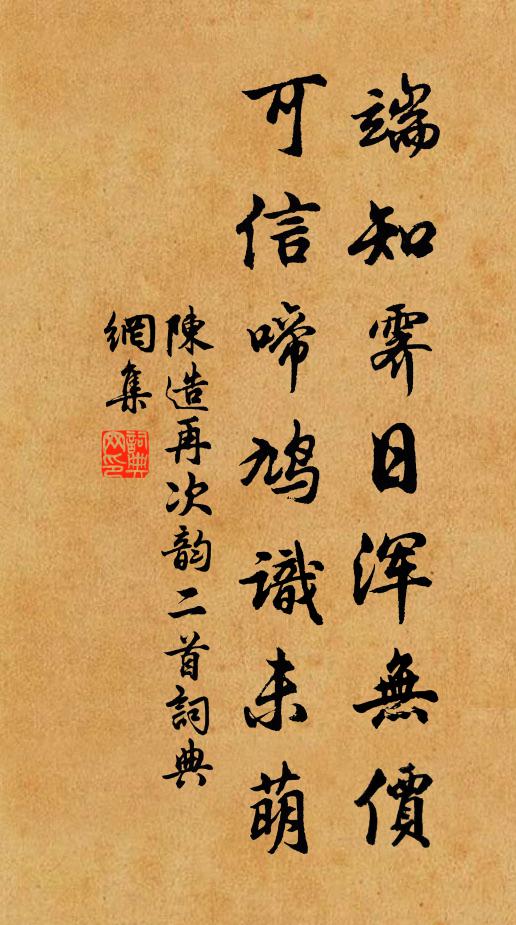 端知霽日渾無價
可信啼鳩識未萌
陳造再次韵二首詞典
網集
詞典
网印